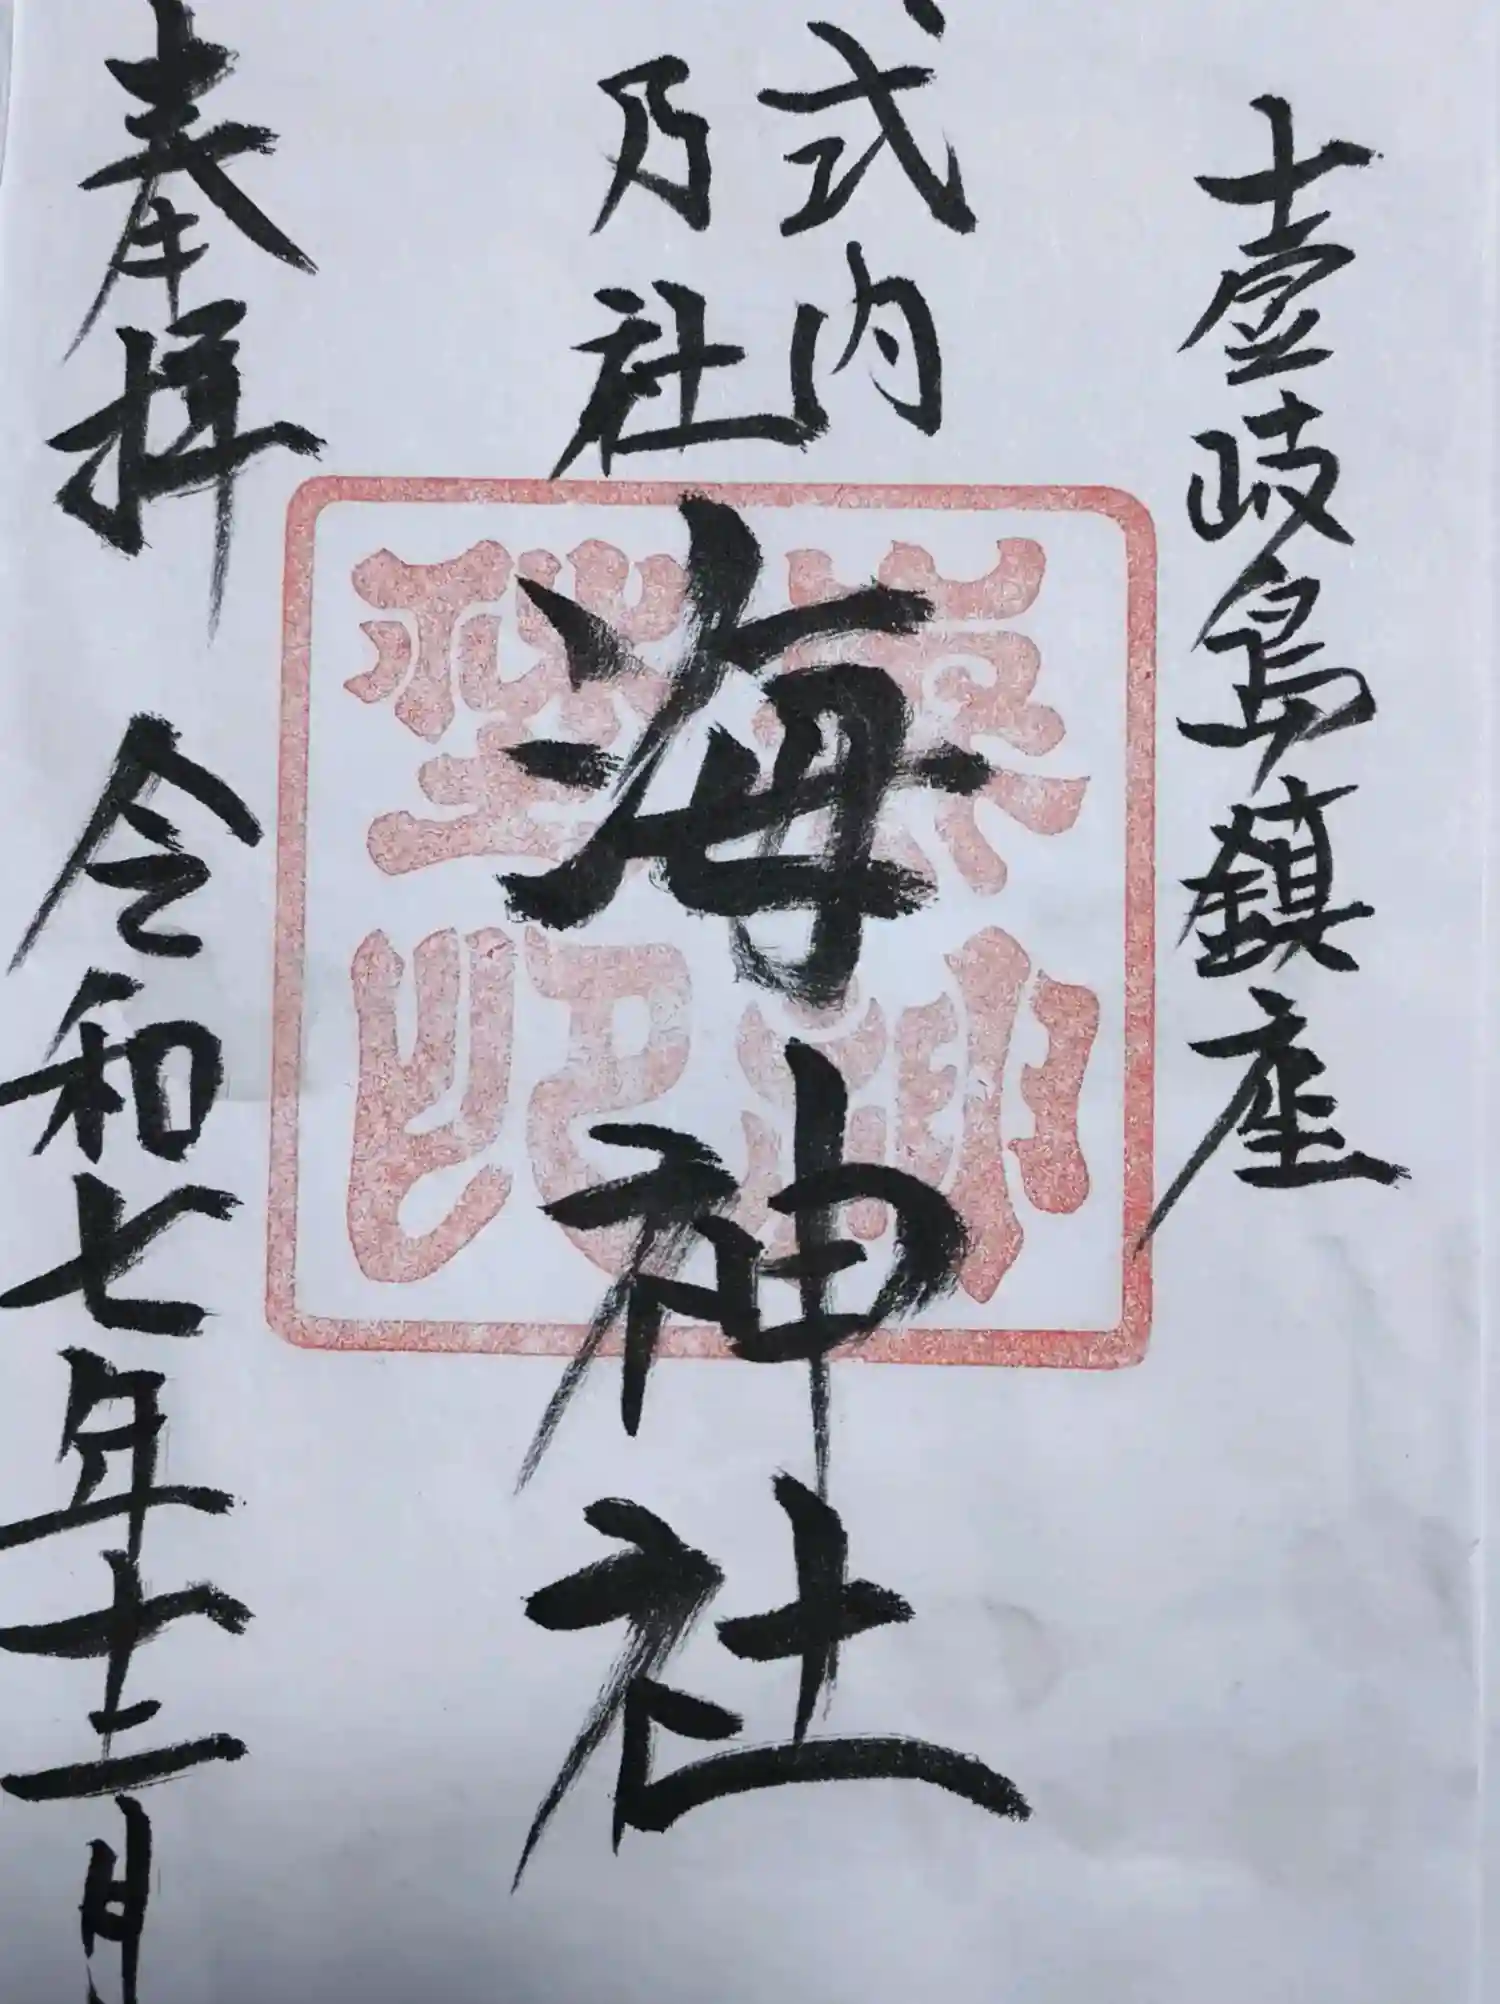 壹岐島鎮座
式内
乃社
海神社
奉拝 令和七年十二月